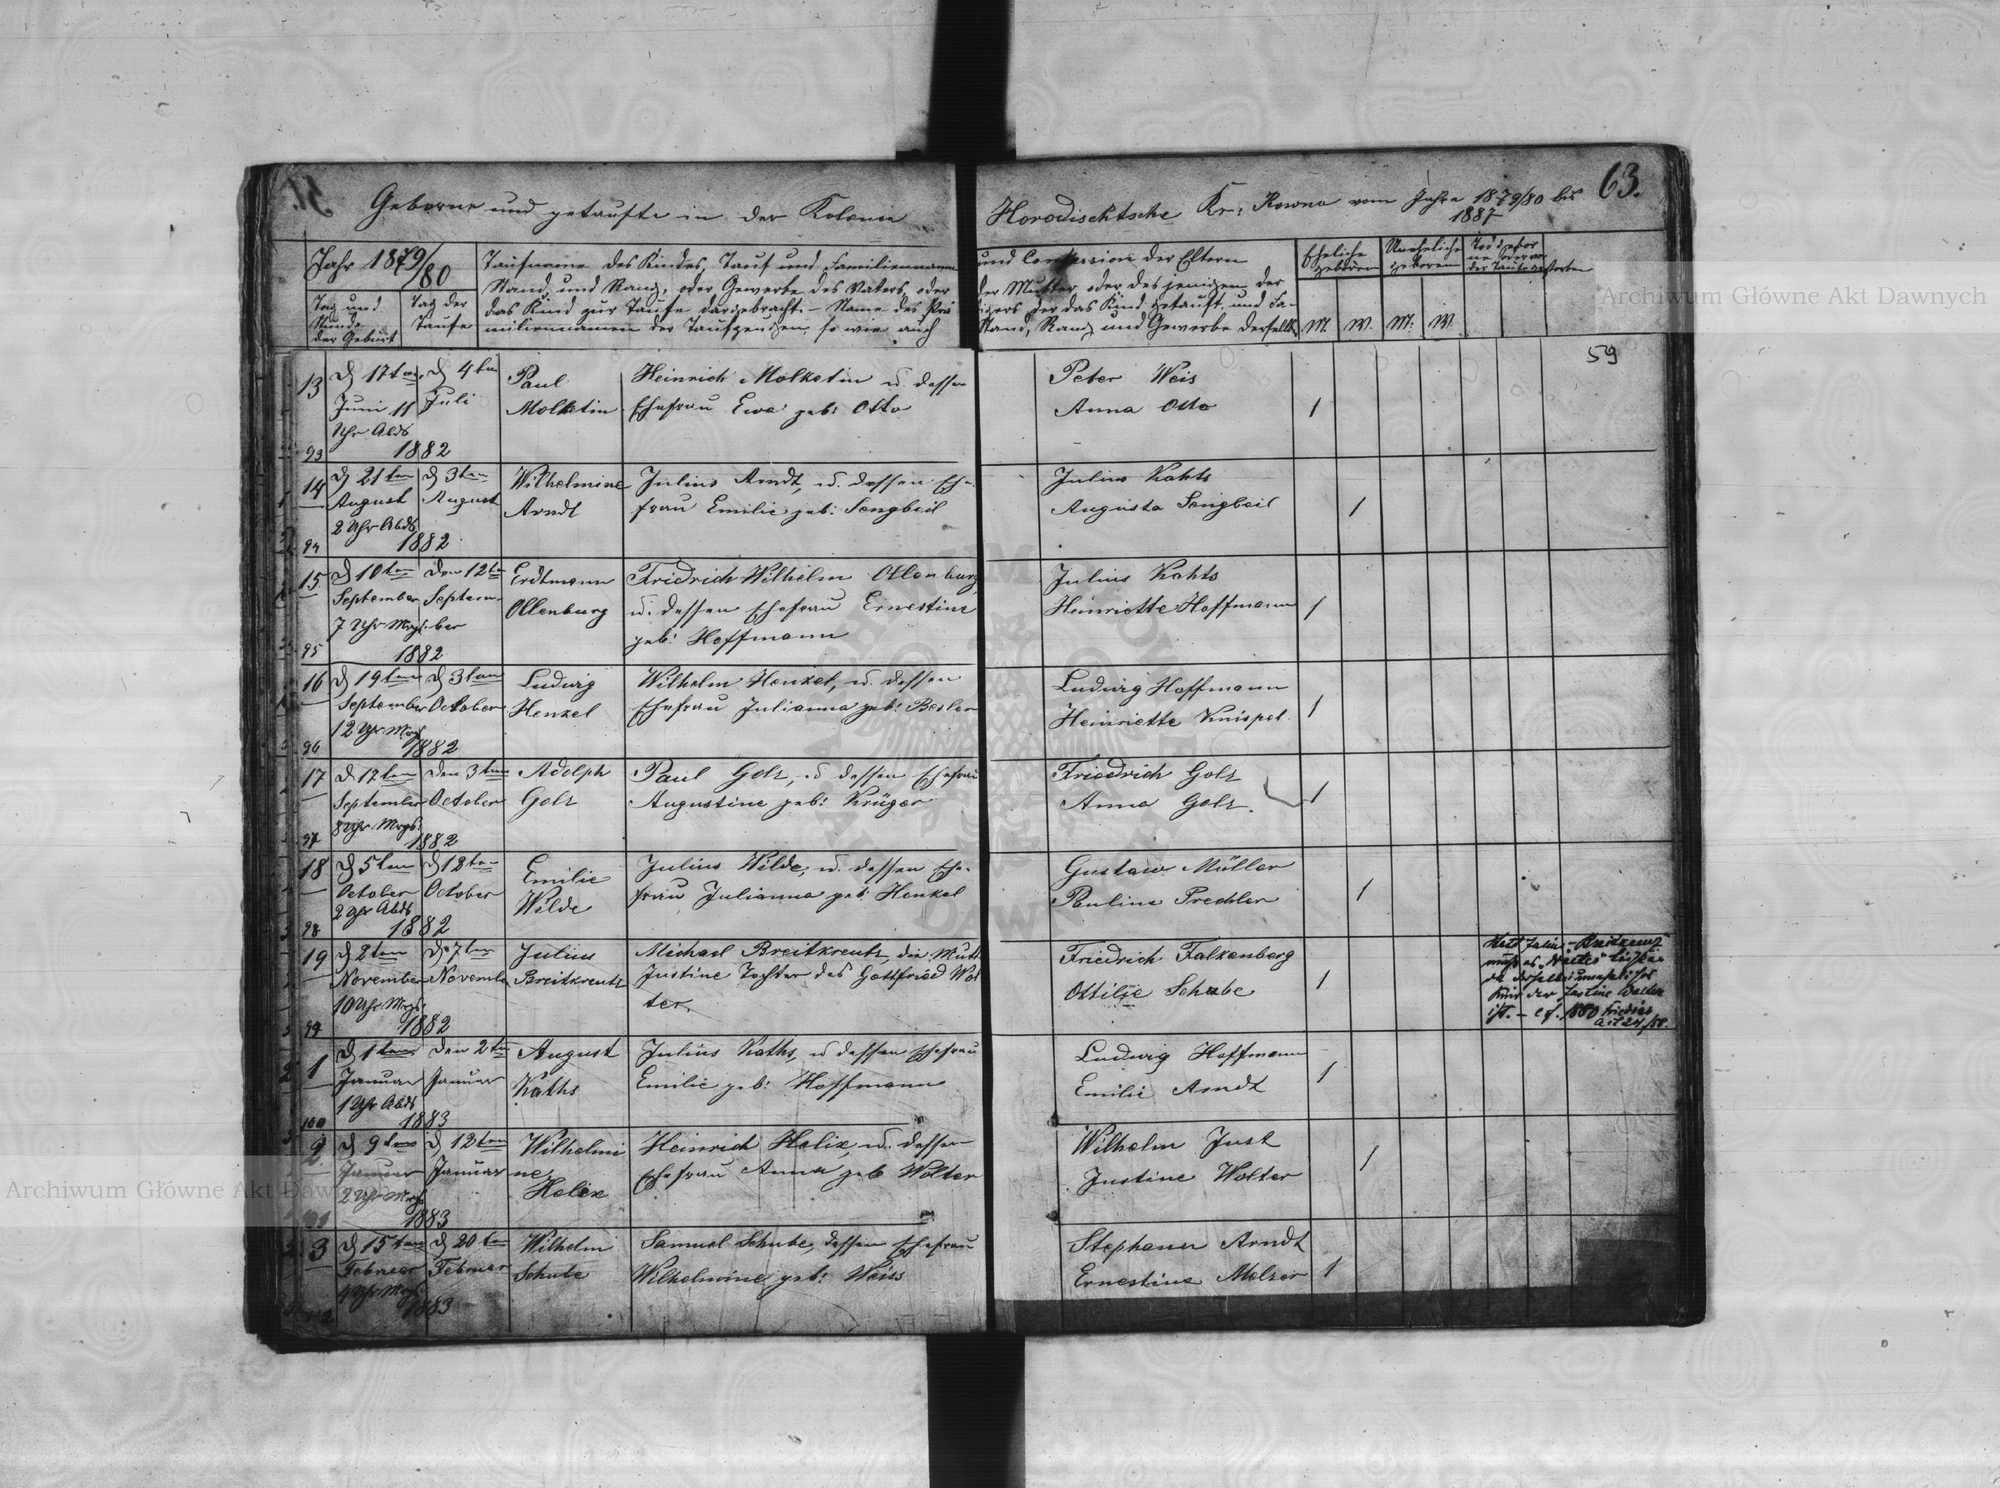 51.
Geborne und getaufte in der Kolonie
Horodischtsche Kr: Rowno vom Jahre 1879/80 bis
1887
63.
Jahr 1879/80
Tag und
Stunde
der Geburt
Tag der
Taufe
Taufname des Kindes, Tauf und Familienname
Stand und Rang, oder Gewerbe des Vaters, oder
das Kind zur Taufe dargebracht. – Name des Pre
miliennamen der Taufzeugen, so wie auch
und Confession der Eltern
der Mutter oder desjenigen der
digers der das Kind getauft und Fa-
Stand, Rang und Gewerbe derselb.
Eheliche
geboren
Uneheliche
geboren
Todtgebor
ne oder vor
der Taufe gestorben
M. W. M: W.
59
13
d 17ten
Juni 11
Uhr Abds
d 4ten
Juli
1882
93
Paul
Molketin
Heinrich Molketin u. dessen
Ehefrau Ewa geb: Otto
Peter Weis
Anna Otto
1
14
d 21ten
August
8 Uhr Abds
d 3ten
August
1882
94
Wilhelmine
Arndt
Julius Arndt, u. dessen Ehe-
frau Emilie geb: Sengbeil
Julius Kahts
Augusta Sengbeil
1
15
d 10ten
September
7 Uhr Mrgs.
den 12ten
Septem-
ber
1882
95
Erdtmann
Ollenburg
Fridrich Wilhelm Ollenburg
u. dessen Ehefrau Ernestine
geb: Hoffmann
Julius Kahts
Heinriette Hoffmann
1
16
d 19ten
September
12 Uhr Mrgs
d 3ten
October
1882
96
Ludwig
Henkel
Wilhelm Henkel, u. dessen
Ehefrau Julianna geb: Besler
Ludwig Hoffmann
Heinriette Knispel.
1
17
d 17ten
September
8 Uhr Mrgs.
den 3ten
October
1882
97
Adolph
Golz
Paul Golz, u dessen Ehefrau
Augustine geb: Krüger
Friedrich Golz
Anna Golz
1
18
d 5ten
October
2 Uhr Abds
d 12ten
October
1882
98
Emilie
Wilde
Julius Wilde, u. dessen Ehe-
frau Julianna geb: Henkel
Gustaw Müller
Pauline Prechler
1
19
d 2ten
November
10 Uhr Mrgs.
d 7ten
Novembe
1882
99
Julius
Breitkreutz
Michael Breitkreutz, die Mutt.
Justine Tochter des Gottfried Wol
ter.
Friedrich Falkenberg
Ottilje Schube
1
1
d 1ten
Januar
1 Uhr Abds
den 2ten
Januar
1883
100
August
Kaths
Julius Kaths, u dessen Ehefrau
Emilie geb: Hoffmann
Ludwig Hoffmann
Emilie Arndt
1
2
d 9ten
Januar
2 Uhr Mrgs
d 12ten
Januar
1883
Wilhelmi
ne
Helix
Heinrich Helix, u. dessen
Ehefrau Anna geb Wolter
Wilhelm Just
Justine Wolter
1
3
d 15ten
Februar
4 Uhr Mrgs.
d 20ten
Februar
1883
Wilhelm
Schube
Samuel Schube, dessen Ehefrau
Wilhelmine geb: Weiss
Stephann Arndt
Ernestine Melzer
1
Archiwum Główne Akt Dawnych
Archiwum Główne Akt Dawnych